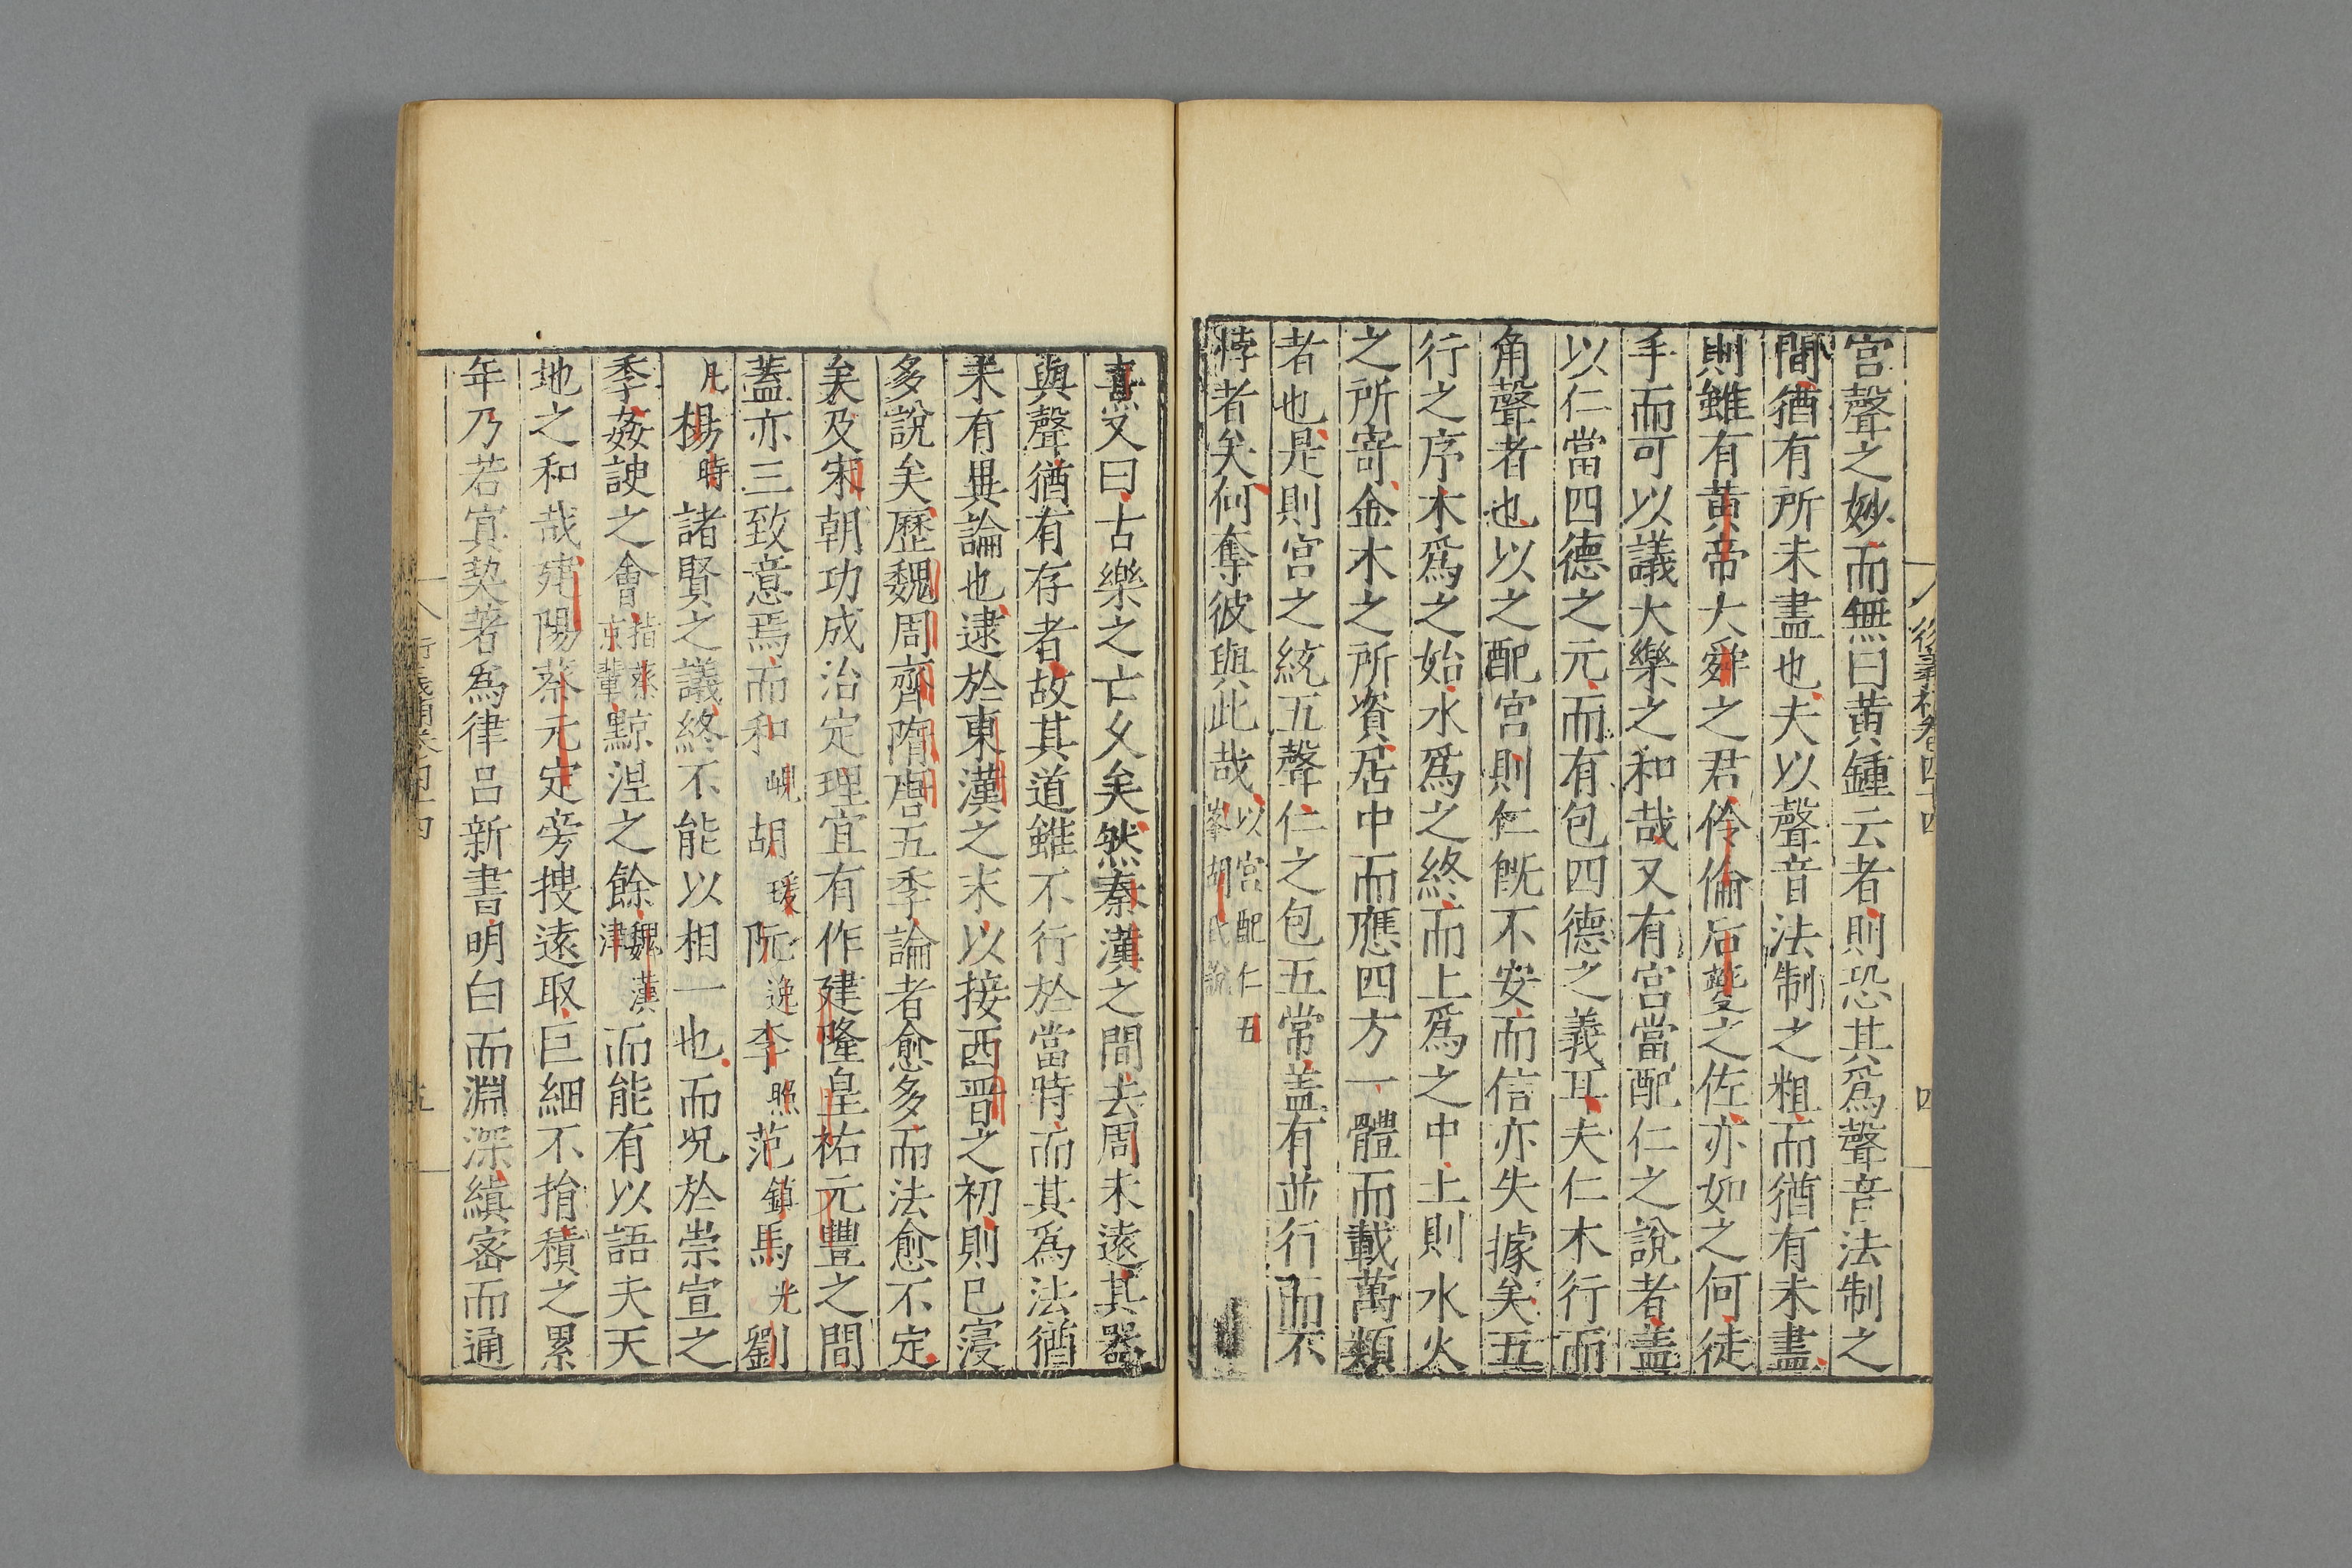 宮聲之妙而無曰黃鍾云者則恐其爲聲音法制之
間猶有所未盡也夫以聲音法制之粗而猶有未盡
則雖有黃帝大舜之君伶倫后夔之佐亦如之何徒
手而可以議大樂之和哉又有宮當配仁之說者盖
以仁當四德之元而有包四德之義耳夫仁木行而
角聲者也以之配宮則仁旣不安而信亦失據矣五
行之序木爲之始水爲之終而土爲之中土則水火
之所寄金木之所資居中而應四方一體而載萬類
者也是則宮之統五聲仁之包五常盖有並行而不
悖者矣何奪彼與此哉以宮配仁五
峯胡氏說
熹又曰古樂之亡乆矣然秦漢之間去周未遠其器
與聲猶有存者故其道雖不行於當時而其爲法猶
未有異論也逮於東漢之末以接西晋之初則已寖
多說矣歷魏周齊隋唐五季論者愈多而法愈不定
矣及宋朝功成治定理宜有作建隆皇祐元豐之間
蓋亦三致意焉而和峴胡瑗阮逸李照范鎮馬光劉
几楊時諸賢之議終不能以相一也而况於崇宣之
季姦諛之會指蔡京輩黥涅之餘魏漢津而能有以語夫天
地之和哉建陽蔡元定旁搜遠取巨細不捐積之累
年乃若寘契著爲律呂新書明白而淵深縝密而通